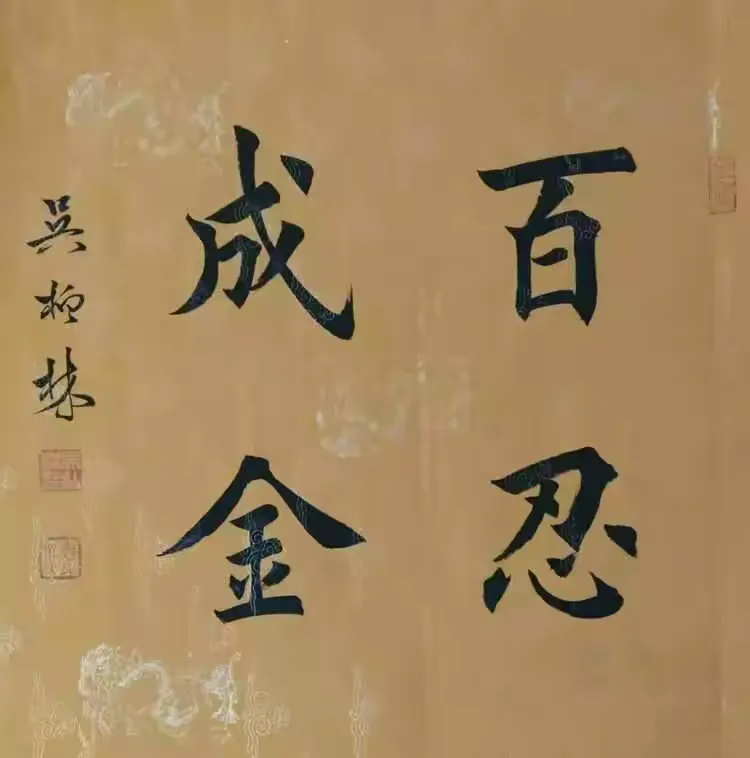 百忍
成金
吳柳林